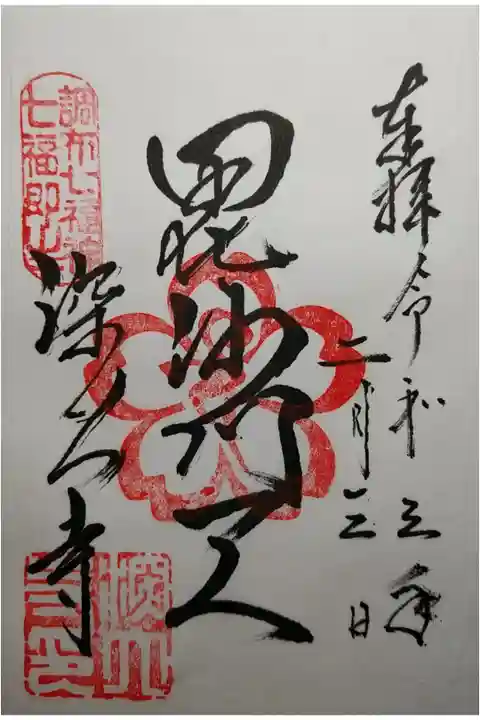 奉拝 令和三年
二月三日
毘沙門天
調布七福神
七福即生
深大寺